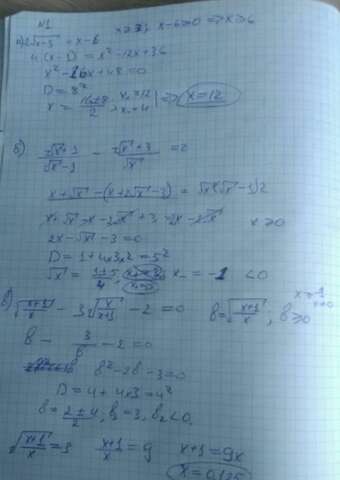 №1
x≥3; x-6≥0 ⇒ x≥6
а) 2√x-3 = x-6
4(x-3) = x²-12x+36
x²-16x+48=0
D=8²
x = (16±8)/2, x₁=12, x₂=4 | ⇒ x=12
б) (√x+1)/(√x-1) - (√x+3)/√x = 2
x+√x-(x+2√x-3) = √x(√x-1)2
x+√x-x-2√x+3=2x-2√x x≥0
2x-√x-3=0
D=1+4×3×2=5²
√x = (1±5)/4, x₋=-1 <0
в) √(x+1)/x - 3√x/(x+1) - 2 = 0 b=√(x+1)/x; b≥0
b - 3/b - 2 = 0
b²-2b-3=0
D=4+4×3=4²
b=(2±4)/2, b₁=3, b₂<0
√(x+1)/x = 3 (x+1)/x = 9 x+1=9x
x=0,125